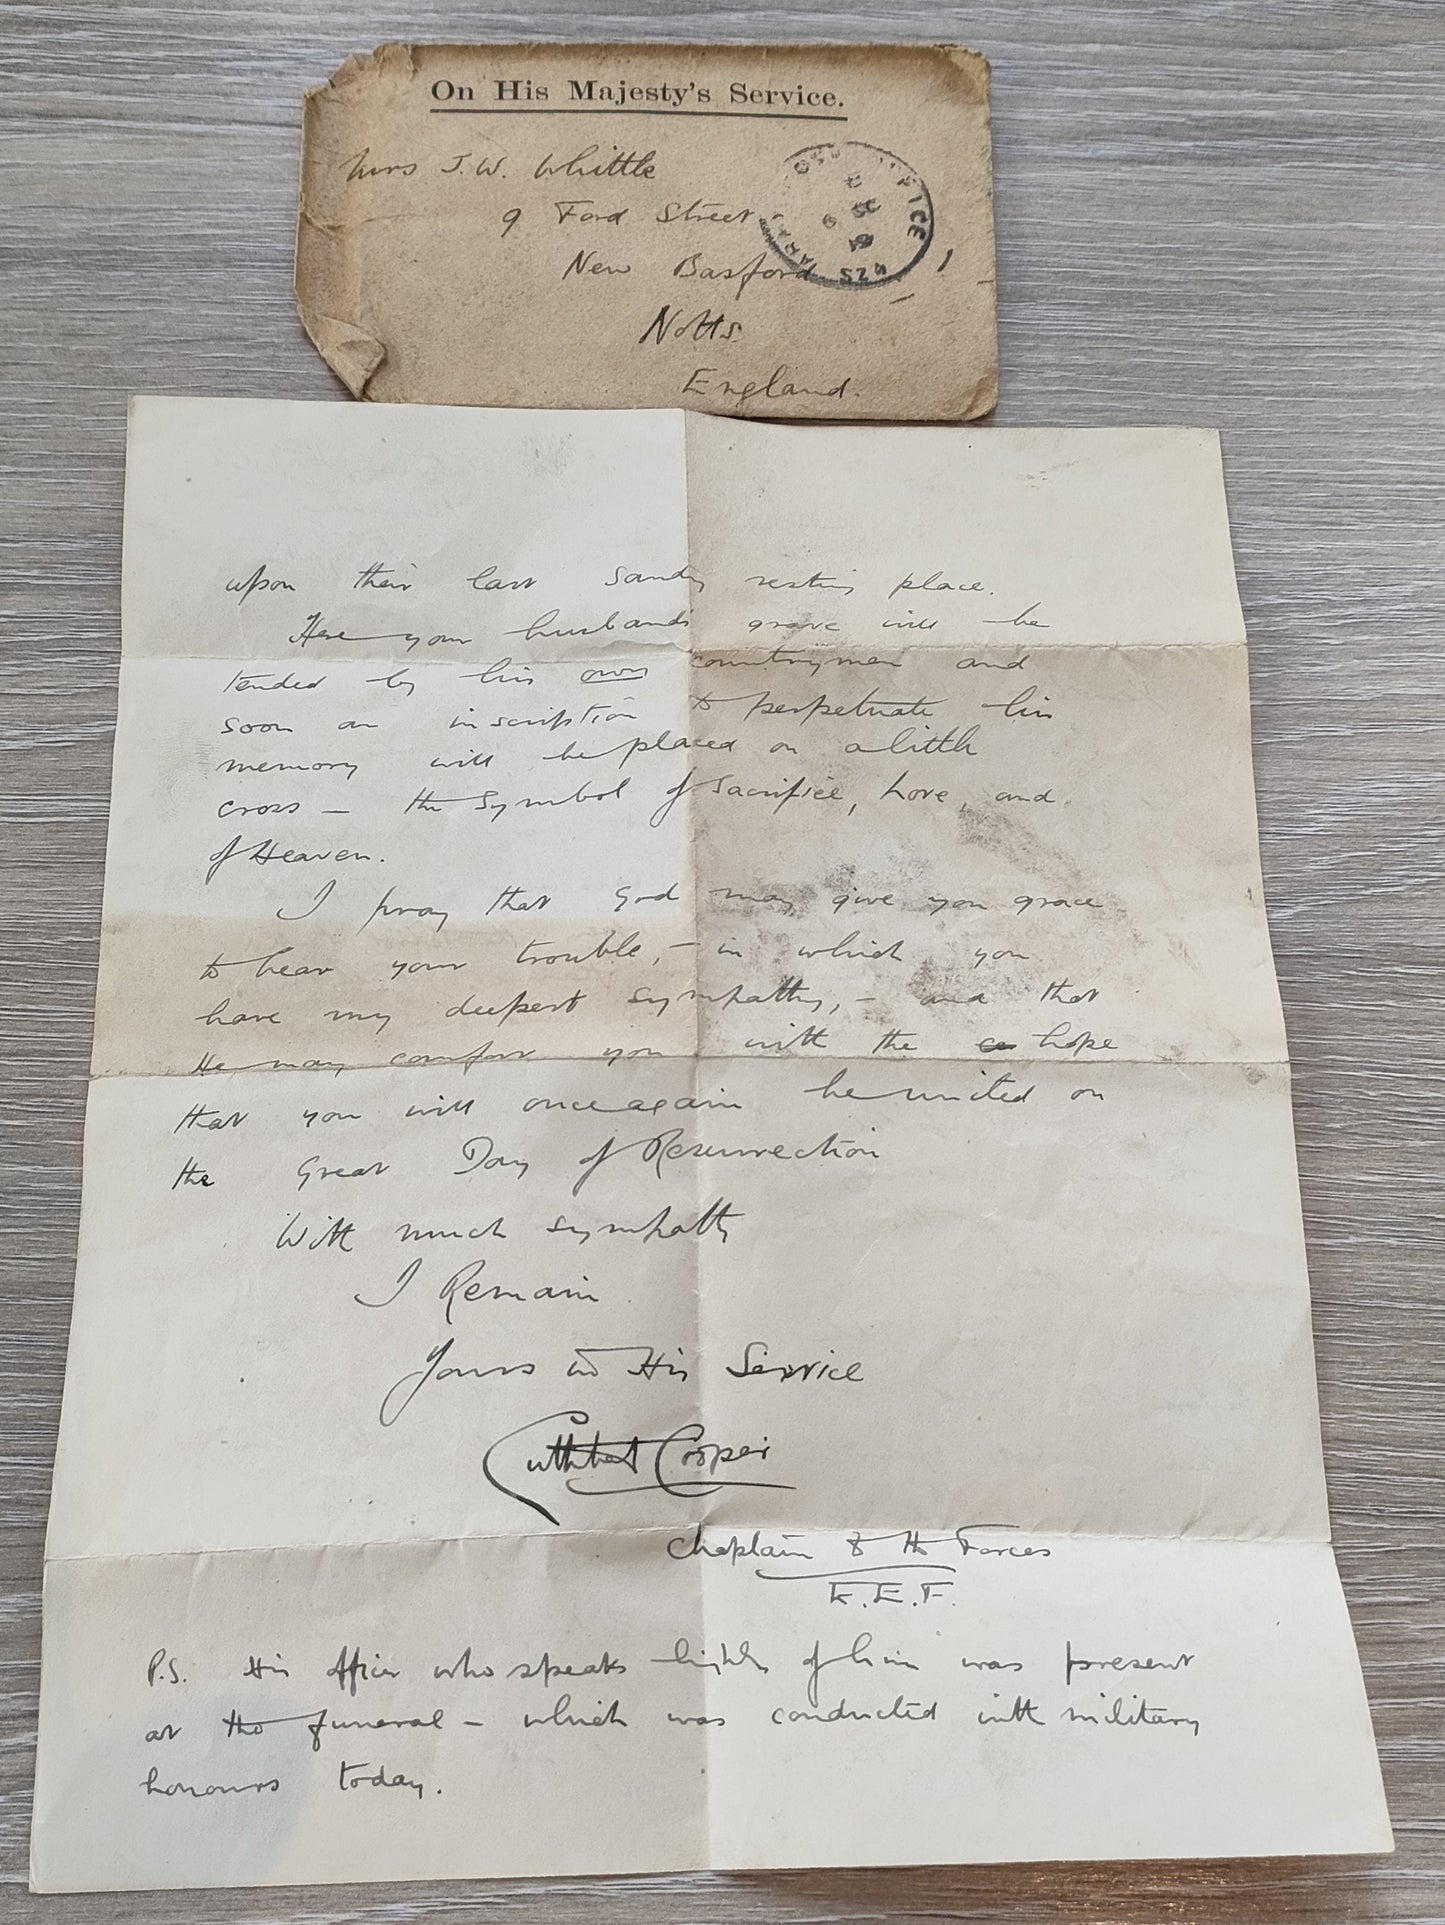 On His Majesty's Service.
Mrs J.W. Whittle
9 Ford Street
New Basford
Notts.
England.
upon their last sandy resting place.
Here your husband's grave will be
tended by his own countrymen and
soon an inscription to perpetuate his
memory will be placed on a little
cross – the symbol of sacrifice, Love, and
of Heaven.
I pray that God may give you grace
to bear your trouble, – in which you
have my deepest sympathy, – and that
He may comfort you with the hope
that you will once again be united on
the Great Day of Resurrection
With much sympathy
I Remain
Yours in His Service
Cuthbert Cooper
Chaplain to the Forces
E.E.F.
P.S. His officer who speaks highly of him was present
at the funeral – which was conducted with military
honours today.